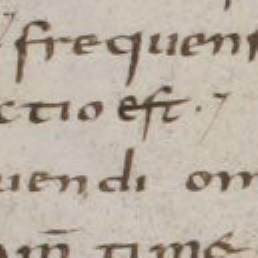 frequent
ctio est.
uendi om